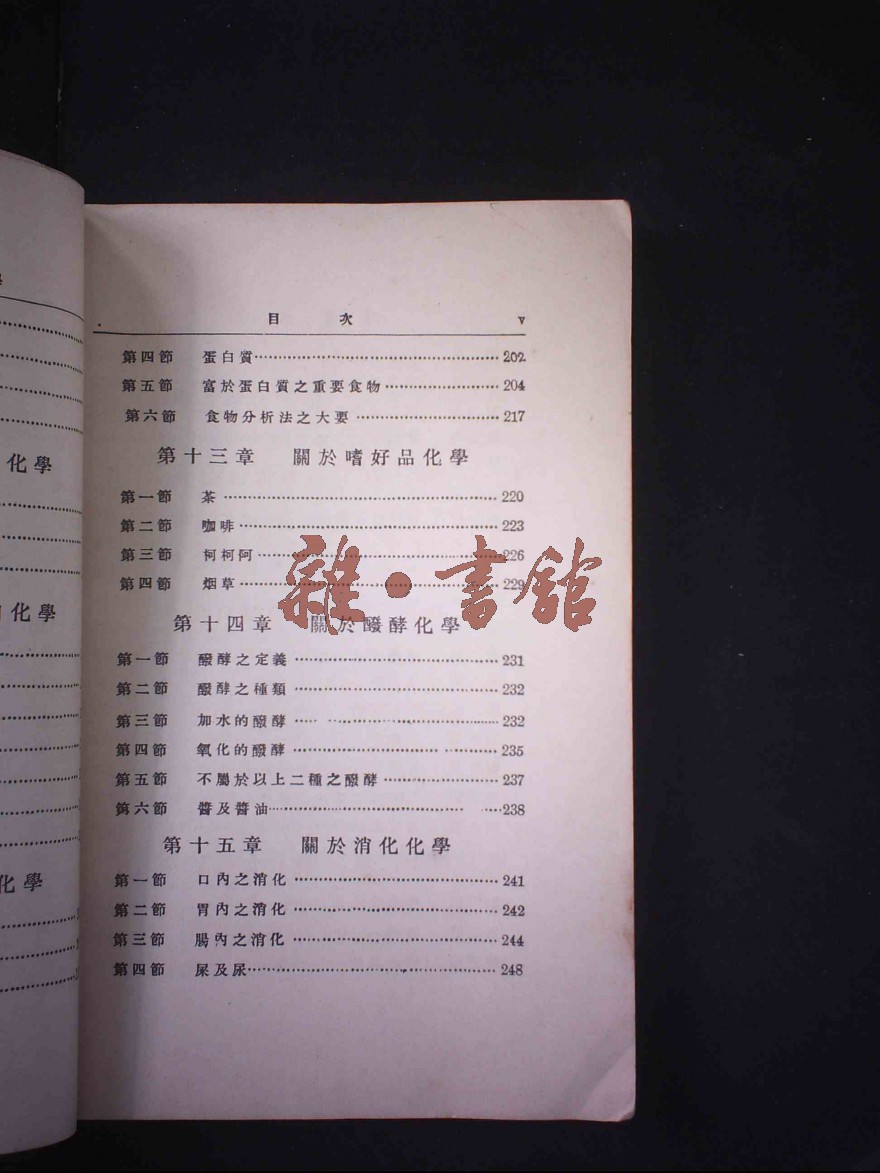 化學
化學
化學
目 次 v
第四節 蛋白質 202
第五節 富於蛋白質之重要食物 204
第六節 食物分析法之大要 217
第十三章 關於嗜好品化學
第一節 茶 220
第二節 咖啡 223
第三節 柯柯阿 226
第四節 烟草 229
雜·書館
第十四章 關於醱酵化學
第一節 醱酵之定義 231
第二節 醱酵之種類 232
第三節 加水的醱酵 232
第四節 氧化的醱酵 235
第五節 不屬於以上二種之醱酵 237
第六節 醬及醬油 238
第十五章 關於消化化學
第一節 口內之消化 241
第二節 胃內之消化 242
第三節 腸內之消化 244
第四節 屎及尿 248